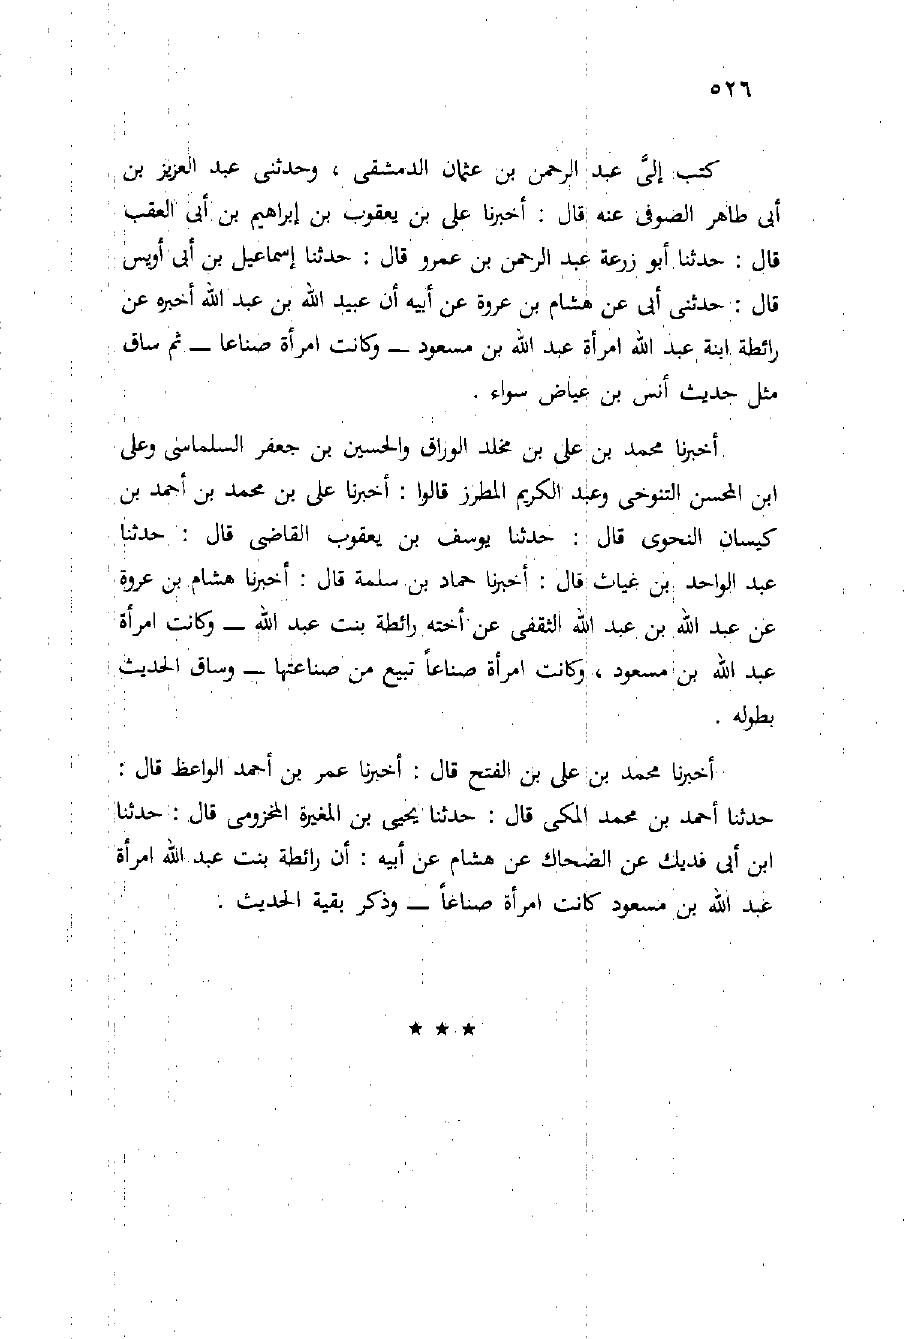 ٥٢٦
كتب إلىَّ عبد الرحمن بن عثمان الدمشقى ، وحدثنى عبد العزيز بن
أبى طاهر الصوفى عنه قال : أخبرنا على بن يعقوب بن إبراهيم بن أبى العقب
قال : حدثنا أبو زرعة عبد الرحمن بن عمرو قال : حدثنا إسماعيل بن أبى أويس
قال : حدثنى أبى عن هشام بن عروة عن أبيه أن عبيد الله بن عبد الله أخبره عن
رائطة ابنة عبد الله امرأة عبد الله بن مسعود – وكانت امرأة صناعا – ثم ساق
مثل حديث أنس بن عياض سواء .
أخبرنا محمد بن على بن مخلد الوراق والحسين بن جعفر السلماسى وعلى
ابن المحسن التنوخى وعبد الكريم المطرز قالوا : أخبرنا على بن محمد بن أحمد بن
كيسان النحوى قال : حدثنا يوسف بن يعقوب القاضى قال : حدثنا
عبد الواحد بن غياث قال : أخبرنا حماد بن سلمة قال : أخبرنا هشام بن عروة
عن عبد الله بن عبد الله الثقفى عن أخته رائطة بنت عبد الله – وكانت امرأة
عبد الله بن مسعود ، وكانت امرأة صناعاً تبيع من صناعتها – وساق الحديث
بطوله .
أخبرنا محمد بن على بن الفتح قال : أخبرنا عمر بن أحمد الواعظ قال :
حدثنا أحمد بن محمد المكى قال : حدثنا يحيى بن المغيرة المخزومى قال : حدثنا
ابن أبى فديك عن الضحاك عن هشام عن أبيه : أن رائطة بنت عبد الله امرأة
عبد الله بن مسعود كانت امرأة صناعاً – وذكر بقية الحديث .
★ ★ ★